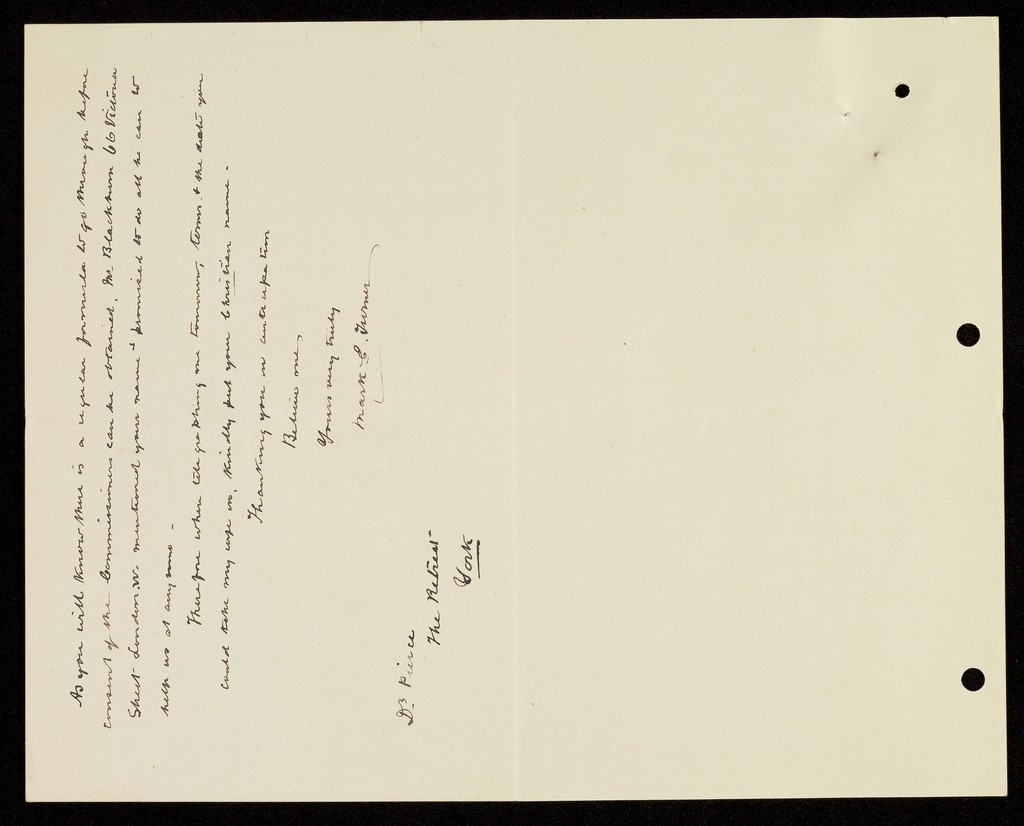 As you will know there is a regular formula to go through before
consent of the Commissioners can be obtained. Mr Blackburn 66 Victoria
Street London. W. mentioned your name & promised to do all he can to
help us at any time -
Therefore when telegraphing me tomorrow, terms & the date you
could take my wife in, kindly put your Christian name -
Thanking you in anticipation
Believe me,
Yours very truly
Mark C. Turner
Dr Pierce
The Retreat
York